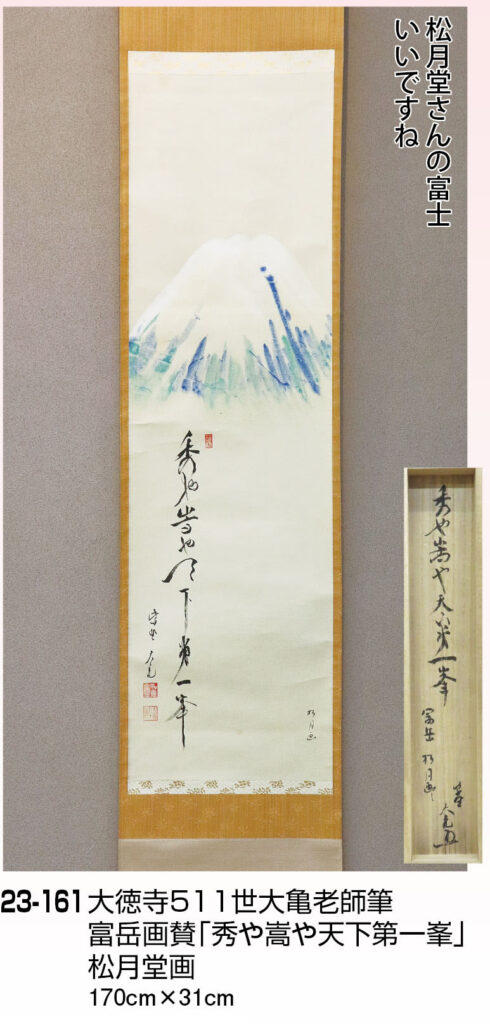 松月堂さんの富士
いいですね
秀や嵩や天下第一峯
松月画
秀や嵩や天下第一峯
富岳 松月画
23-161 大徳寺511世大亀老師筆
富岳画賛「秀や嵩や天下第一峯」
松月堂画
170cm×31cm